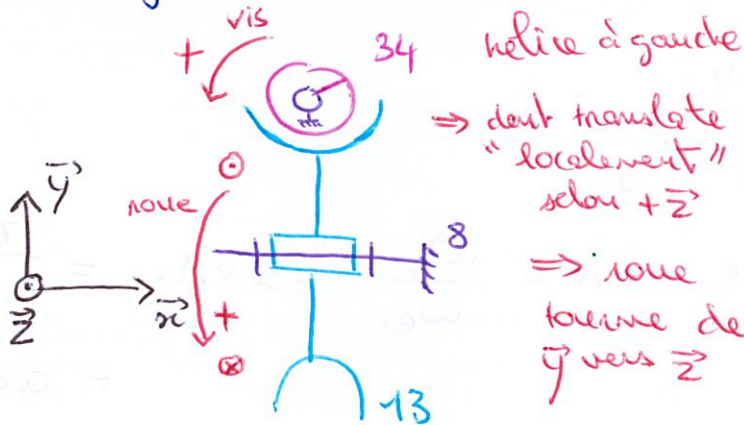 vis
+
34
hélice à gauche
⇒ dent translate
"localement"
selon +z⃗
y⃗
roue
8
z⃗
x⃗
+
⇒ roue
tourne de
y⃗ vers z⃗
13